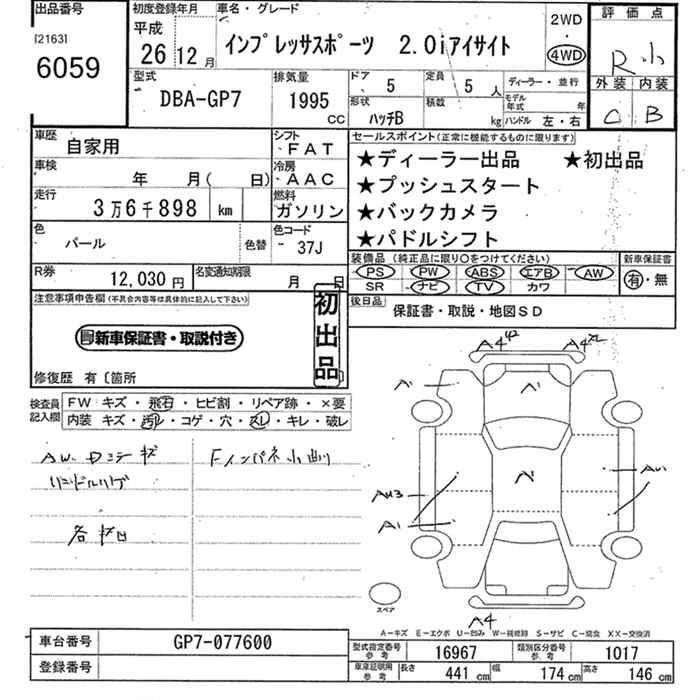 出品番号
[2163]
6059
初度登録年月
平成
26 12 月
車名・グレード
インプレッサスポーツ 2.0iアイサイト
2WD
・
4WD
評価点
R 小
外装 内装
C B
型式
DBA-GP7
排気量
1995
CC
ドア 5
定員 5 人
ディーラー・並行
形状 ハッチB
積載 kg
モデル年式 年
ハンドル 左・右
車歴 自家用
シフト FAT
車検 年 月( 日)
冷房 AAC
走行 3万6千898 km
燃料 ガソリン
色 パール
色替
色コード 37J
R券 12,030円
名変通知期限 月 日
セールスポイント(正常に機能するものに限ります)
★ディーラー出品 ★初出品
★プッシュスタート
★バックカメラ
★パドルシフト
装備品 (純正品に限り○をつけてください)
PS PW ABS エアB AW
SR ナビ TV カワ
新車保証書
有・無
後日品
保証書・取説・地図SD
注意事項申告欄(不具合内容等は具体的に記入して下さい)
新車保証書・取説付き
初出品
修復歴 有〔箇所
検査員記入欄
FW キズ・飛石・ヒビ割・リペア跡・×要
内装 キズ・汚レ・コゲ・穴・スレ・キレ・破レ
AW.
Fインパネ小
各
A4
A4
AU3
A1
AU1
A4
スペア
A-キズ E-エクボ U-凹み W-補修跡 S-サビ C-腐食 XX-交換済
車台番号 GP7-077600
登録番号
型式指定番号 参考 16967
類別区分番号 参考 1017
車庫証明用 参考 長さ 441 cm 幅 174 cm 高さ 146 cm